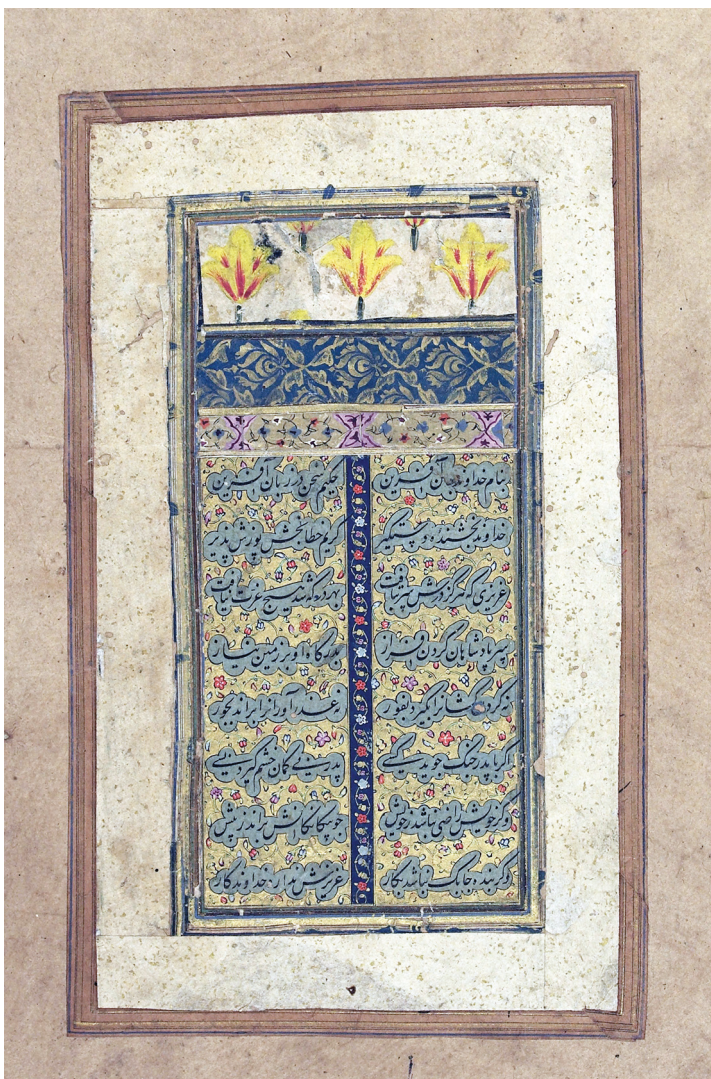 بنام خداوند جان آفرین حکیم سخن در زبان آفرین
خداوند بخشنده دستگیر کریم خطابخش پوزش پذیر
عزیزی که هر کز درش سر بتافت بهر در که شد هیچ عزت نیافت
سر پادشاهان گردن فراز بدرگاه او بر زمین نیاز
نه گردن کشانرا بگیرد بفور نه عذر آورانرا براند بجور
اگر با پدر جنگ جوید کسی پدر بی گمان خشم گیرد بسی
وگر خویش راضی نباشد ز خویش چو بیگانگانش براند ز پیش
وگر بنده چابک نباشد بکار عزیزش ندارد خداوندگار